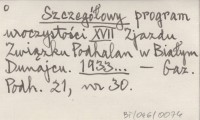 Szczegółowy program
uroczystości XVII Zjazdu
Związku Podhalan w Białym
Dunajcu. 1933... — Gaz.
Podh. 21, nr. 30.
B7/046/0074